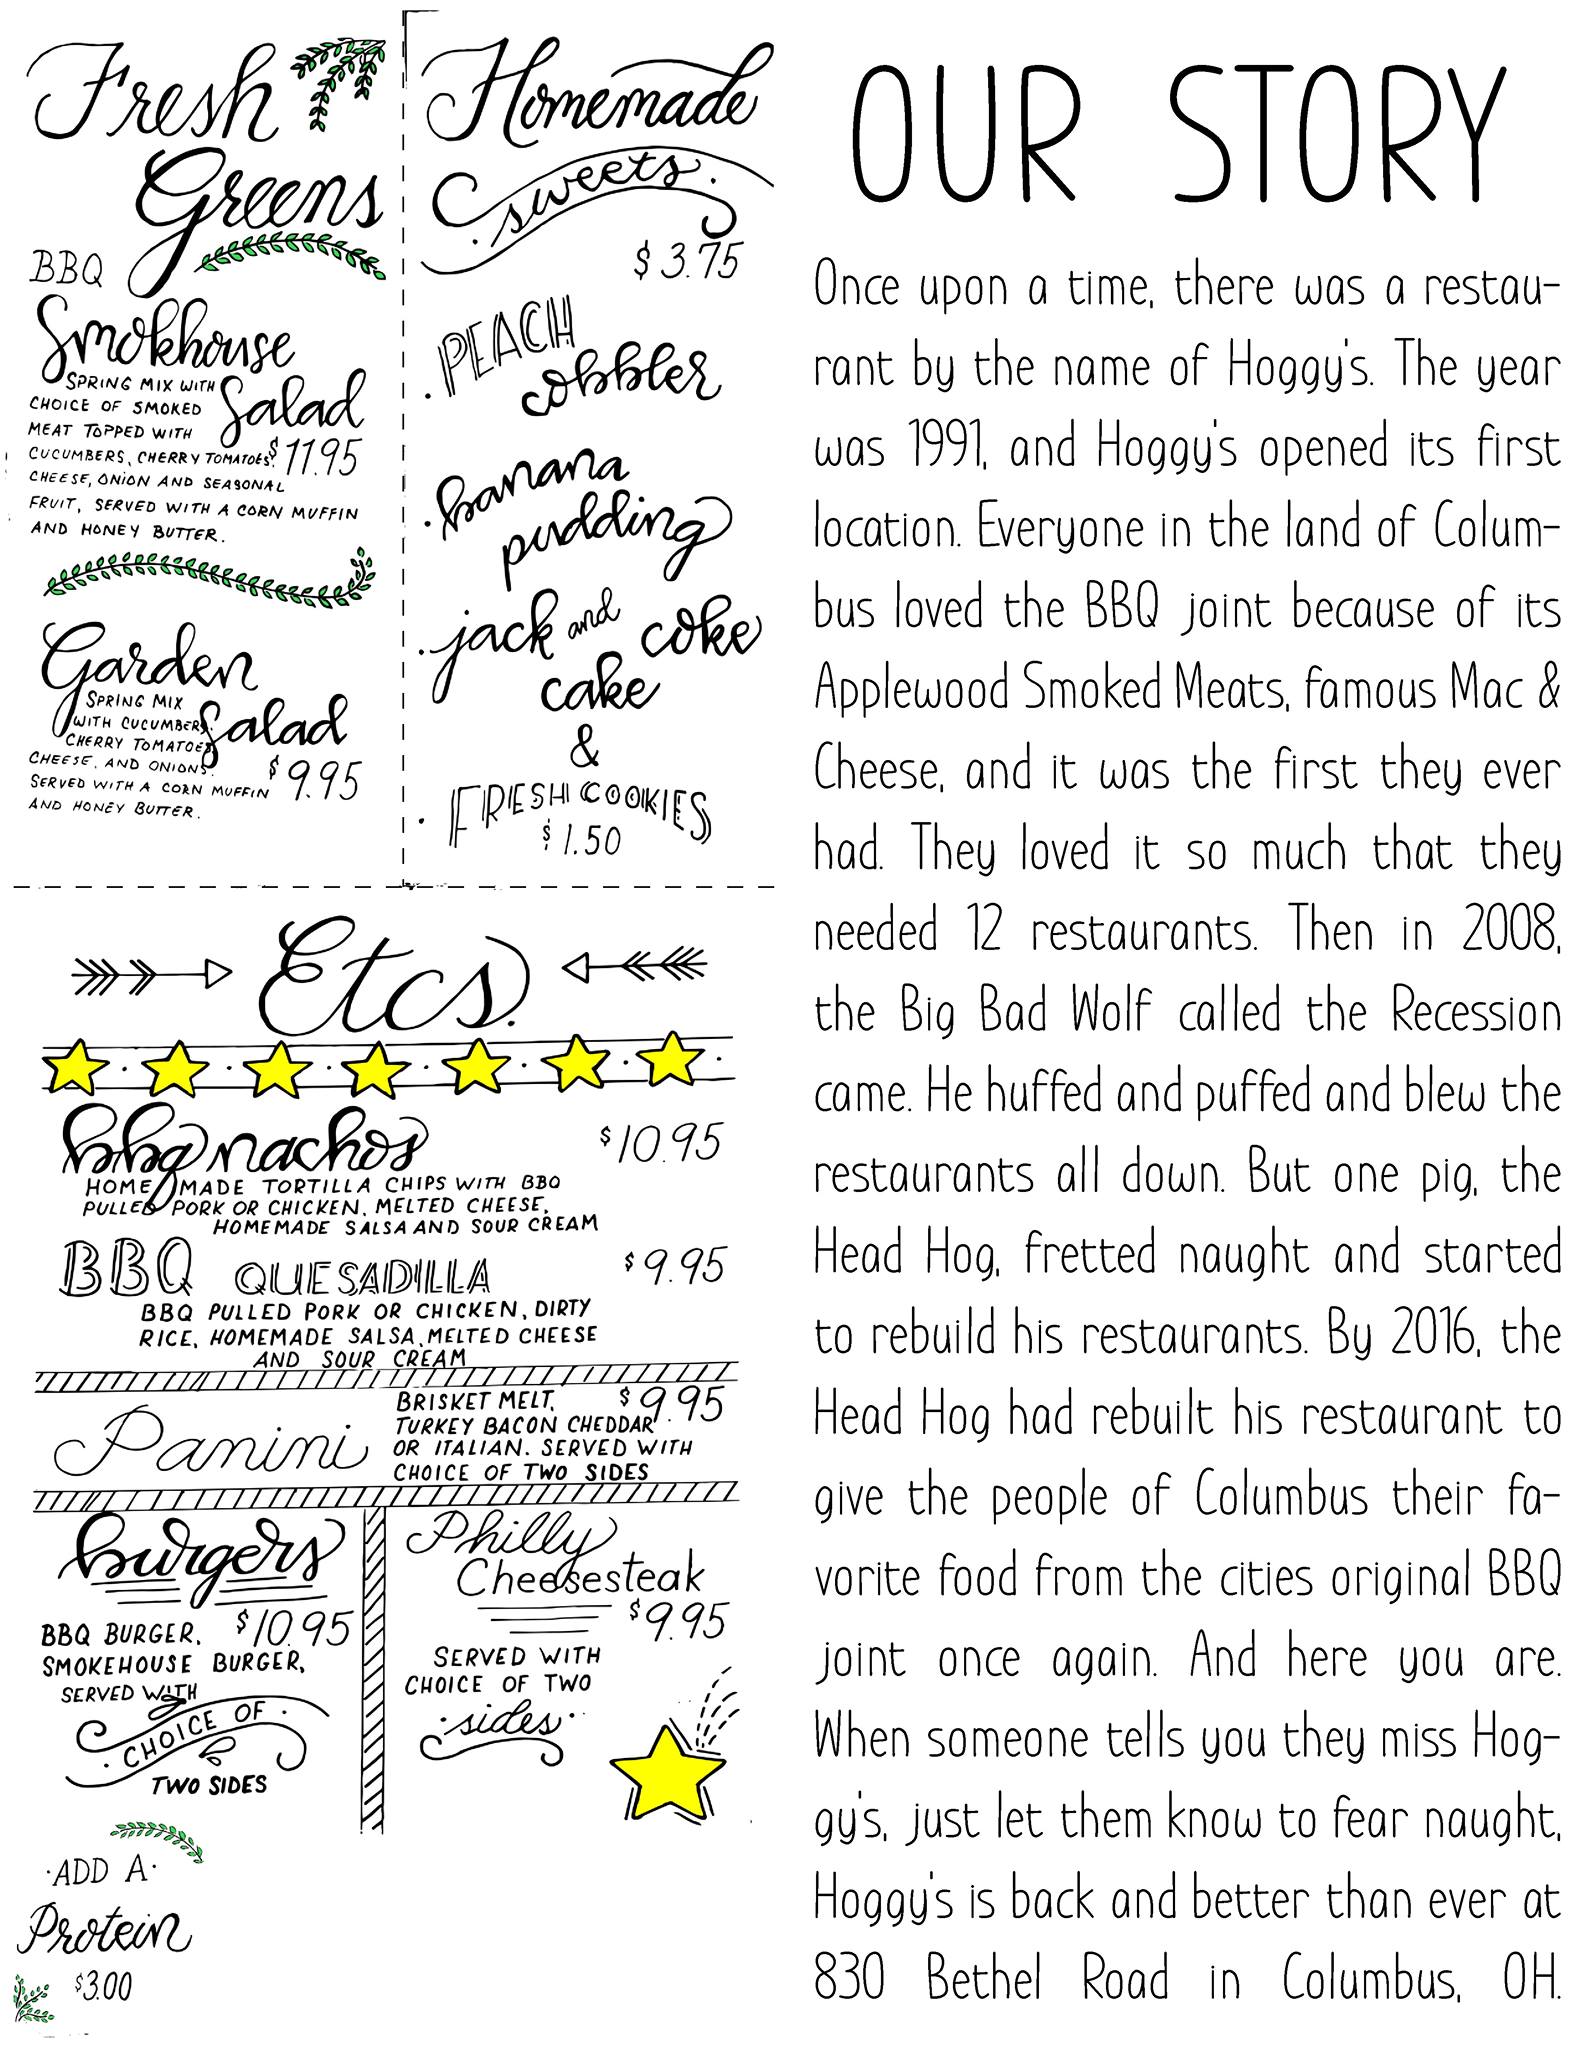 Fresh
Greens
BBQ
Smokhouse
Salad
$11.95
SPRING MIX WITH
CHOICE OF SMOKED
MEAT TOPPED WITH
CUCUMBERS, CHERRY TOMATOES,
CHEESE, ONION AND SEASONAL
FRUIT, SERVED WITH A CORN MUFFIN
AND HONEY BUTTER.
Garden
Salad
$9.95
SPRING MIX
WITH CUCUMBERS,
CHERRY TOMATOES,
CHEESE, AND ONIONS.
SERVED WITH A CORN MUFFIN
AND HONEY BUTTER.
Homemade
.sweets.
$3.75
.PEACH
cobbler
.banana
pudding
.jack and coke
cake
&
.FRESH COOKIES
$1.50
Etcs.
bbq nachos $10.95
HOMEMADE TORTILLA CHIPS WITH BBQ
PULLED PORK OR CHICKEN, MELTED CHEESE,
HOMEMADE SALSA AND SOUR CREAM
BBQ QUESADILLA $9.95
BBQ PULLED PORK OR CHICKEN, DIRTY
RICE, HOMEMADE SALSA, MELTED CHEESE
AND SOUR CREAM
Panini
BRISKET MELT, $9.95
TURKEY BACON CHEDDAR
OR ITALIAN. SERVED WITH
CHOICE OF TWO SIDES
burgers
$10.95
BBQ BURGER,
SMOKEHOUSE BURGER,
SERVED WITH
.CHOICE OF.
TWO SIDES
Philly
Cheesesteak
$9.95
SERVED WITH
CHOICE OF TWO
.sides.
.ADD A.
Protein
$3.00
OUR STORY
Once upon a time, there was a restau-
rant by the name of Hoggy's. The year
was 1991, and Hoggy's opened its first
location. Everyone in the land of Colum-
bus loved the BBQ joint because of its
Applewood Smoked Meats, famous Mac &
Cheese, and it was the first they ever
had. They loved it so much that they
needed 12 restaurants. Then in 2008,
the Big Bad Wolf called the Recession
came. He huffed and puffed and blew the
restaurants all down. But one pig, the
Head Hog, fretted naught and started
to rebuild his restaurants. By 2016, the
Head Hog had rebuilt his restaurant to
give the people of Columbus their fa-
vorite food from the cities original BBQ
joint once again. And here you are.
When someone tells you they miss Hog-
gy's, just let them know to fear naught,
Hoggy's is back and better than ever at
830 Bethel Road in Columbus, OH.